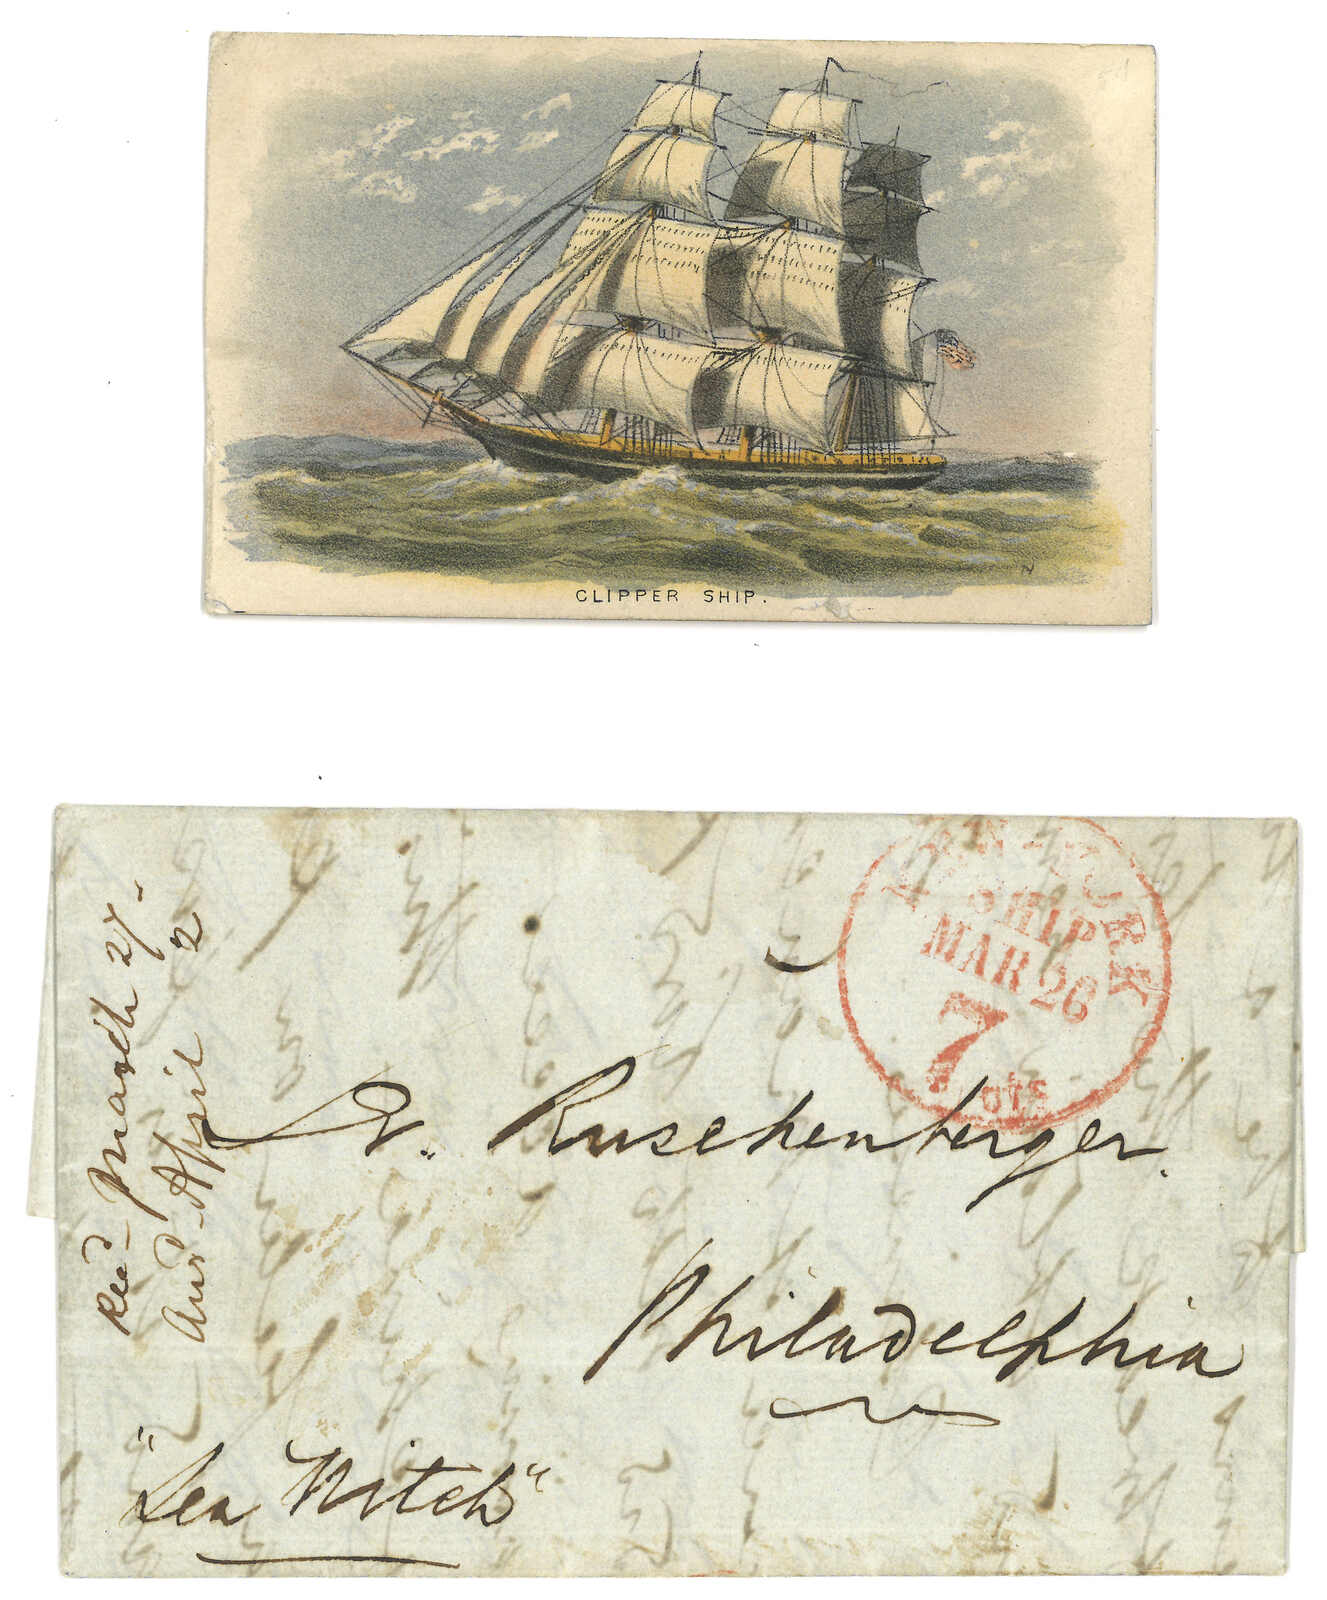 CLIPPER SHIP.
N
NEW YORK
SHIP
MAR 26
7 cts
Recd March 27-
Ansd April 2
Dr. Ruschenberger.
Philadelphia
"Sea Witch"